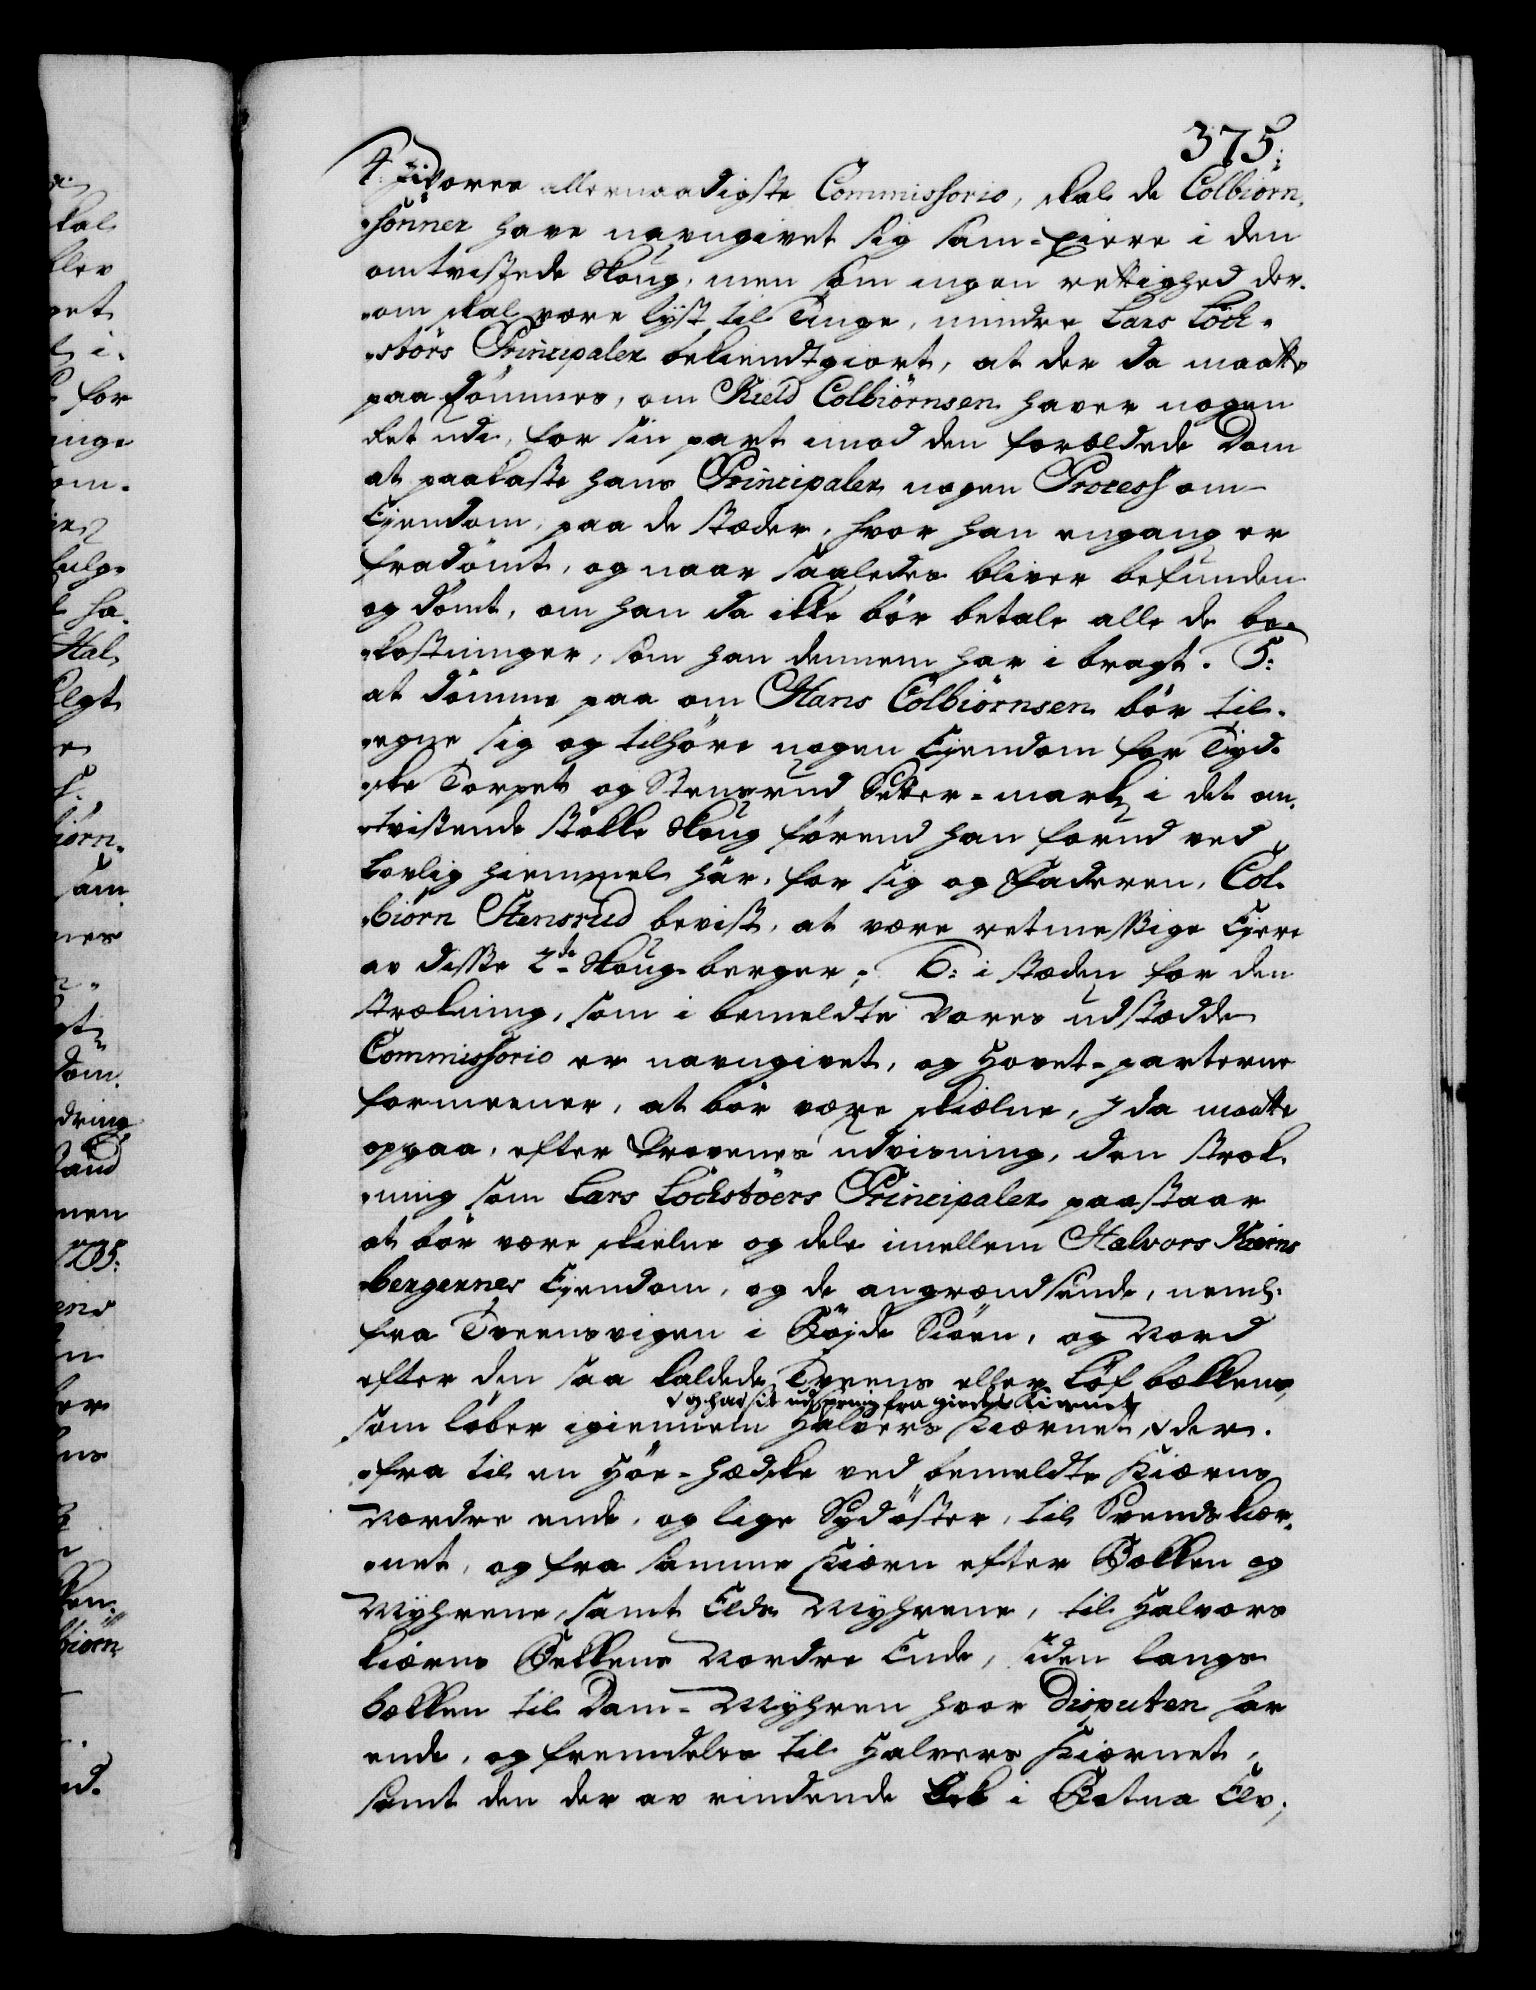 375.
4. i vores allernaadigste Commissorio, skal de Colbiörn,
sönner have navngivet sig sam-Eiere i den
omtvistede Skoug, men som ingen rettighed der-
om skal være lyst til Tinge, mindre Lars Loch-
störs Principaler bekiendtgiort, at der da maatte
paadömmes, om Kield Colbiörnsen haver nogen
Ret udi, for sin part imod den forældede Dom
at paakaste hans Principaler nogen Process om
Ejendom, paa de stæder, hvor han engang er
fradömt, og naar saaledes bliver befunden
og dömt, om han da ikke bör betale alle de be-
kostninger, som han dennem har i bragt. 5:
at dömme paa om Hans Colbiörnsen bör til-
egne sig og tilhöre nogen Ejendom for Tyd-
ske Torpet og Stensrud Setter-mark i det om-
tvistende stökke Skoug förend han forud ved
Lovlig hiemmel har, for sig og Faderen, Col-
biörn Stensrud bevist, at være retmessige Ejere
av disse 2de Skoug-berger; 6: i stæden for den
strækning, som i bemeldte vores udstædde
Commissorio er navngivet, og Hovet-parterne
formeener, at bör være skiælne, da maatte
opgaa, efter Brevenes udvisning, den stræk-
ning som Lars Lochstöers Principaler paastaar
at bör være skielne og dele imellem Halvors Kiærns
bergernes Ejendom, og de angrændsende, neml:
fra Tveensvigen i Böjde Siöen, og Nord
efter den saa kaldede Tveens eller Löf bækken,
og har sit udspring fra giedde Kiernet
som löber igiennem Halvers Kiærnet, der-
fra til en Höe-hædske ved bemeldte Kiærns
Nordre ende, og lige Sydöster, til Svendskiær-
net, og fra samme Kiærn efter Bækken og
Myhrene, samt Elds Myhrene, til Halvors
kiærns Bekkens Nordre Ende, siden langs
bækken til Dam-Myhren hvor Disputen har
ende, og fremdeles til Halvers Kiærnet,
samt den der av rindende Bek i Botna Elv;